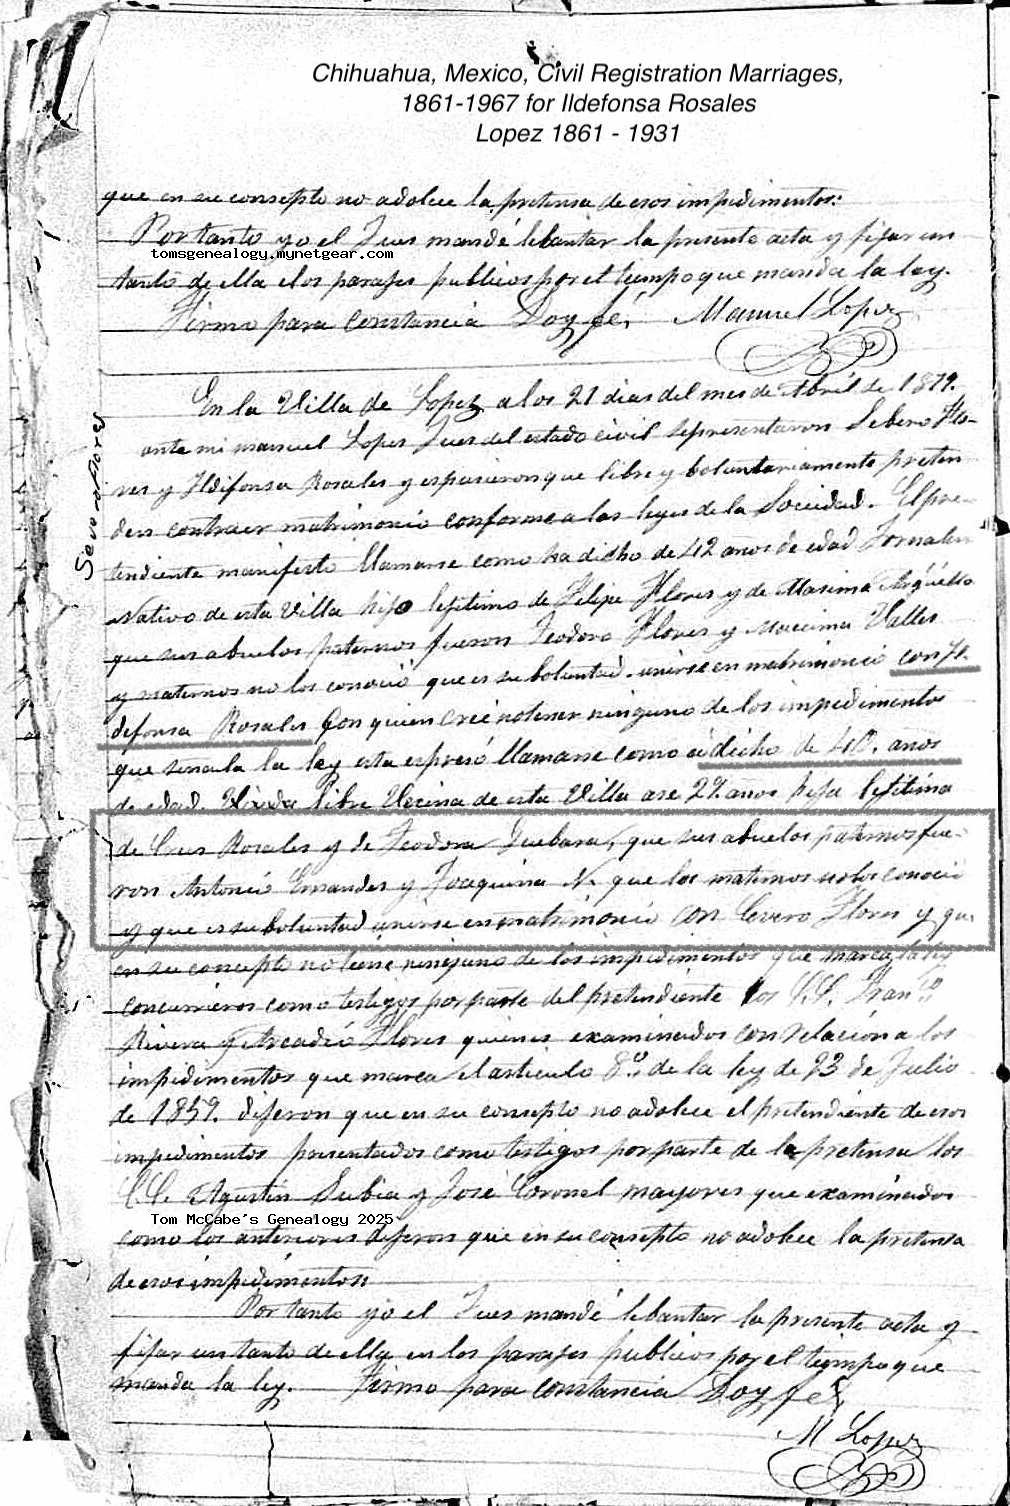 Chihuahua, Mexico, Civil Registration Marriages,
1861-1967 for Ildefonsa Rosales
Lopez 1861 - 1931
que en su consepto no adolece la pretensa de esos impedimentos:
Por tanto yo el Jues mandé lebantar la presente acta y fijar un
tomsgenealogy.mynetgear.com
tanto de ella e los parajes publicos por el tiempo que manda la ley.
Firmo para constancia Doy fé, Manuel Lopez
En la Villa de Lopez a los 21 dias del mes de Abril de 1879.
ante mi manuel Lopes Jues del estado civil sepresentaron Sebero Flo-
res y Ildifonsa Rosales y espusieron que libre y boluntariamente preten
den contraer matrimonio conforme a las leyes de la Sociedad. El pre-
tendiente manifesto llamarse como ha dicho de 42 anos de edad Jornalero
Nativo de esta Villa hijo lejitimo de Felipe Flores y de Masima Arguello
que sus abuelos paternos fueron Teodoro Flores y Maccima Valles
y maternos no los conoció que es su boluntad unirse en matrimonio con Il
defonsa Rosales con quien cree no tener ninguno de los impedimentos
que senala la ley esta espresó llamarse como a dicho de 40. anos
de edad. Viuda libre Vecina de esta Villa ase 27 anos hija lejitima
de Crus Rosales y de Teodora Juebara, que sus abuelos paternos fue-
ron Antonio Ernandes y Joaquina N. que los maternos no los conoció
y que es su boluntad unirse en matrimonio con Cevero Flores y que
en su concepto no tiene ninguno de los impedimentos que marca la ley
concurrieron como testigos por parte del pretendiente los C.C. Franco
Rivera y Arcadio Flores quienes examinados con relacion a los
impedimentos que marca el articulo 8o de la ley de 23 de Julio
de 1859. dijeron que en su consepto no adolece el pretendiente de esos
impedimentos presentados como testigos por parte de la pretensa los
C.C. Agustin Subia y José Coronel mayores que examinados
Tom McCabe's Genealogy 2025
como los anteriores dijeron que en su consepto no adolece la pretensa
de esos impedimentos
Por tanto yo el Jues mandé lebantar la presente acta y
fijar un tanto de ella en los parajes publicos por el tiempo que
manda la ley. Firmo para constancia Doy fe
M Lopez
Severo Flores